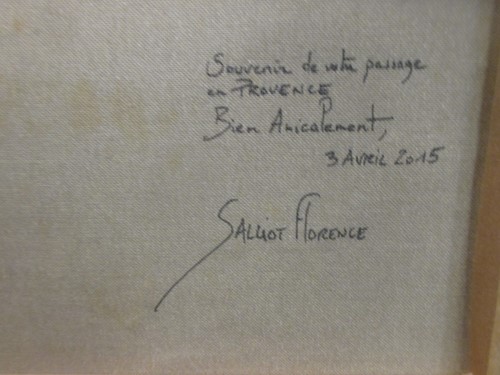 Souvenir de votre passage
en PROVENCE
Bien Amicalement,
3 AVRIL 2015
SALLIOT FLORENCE